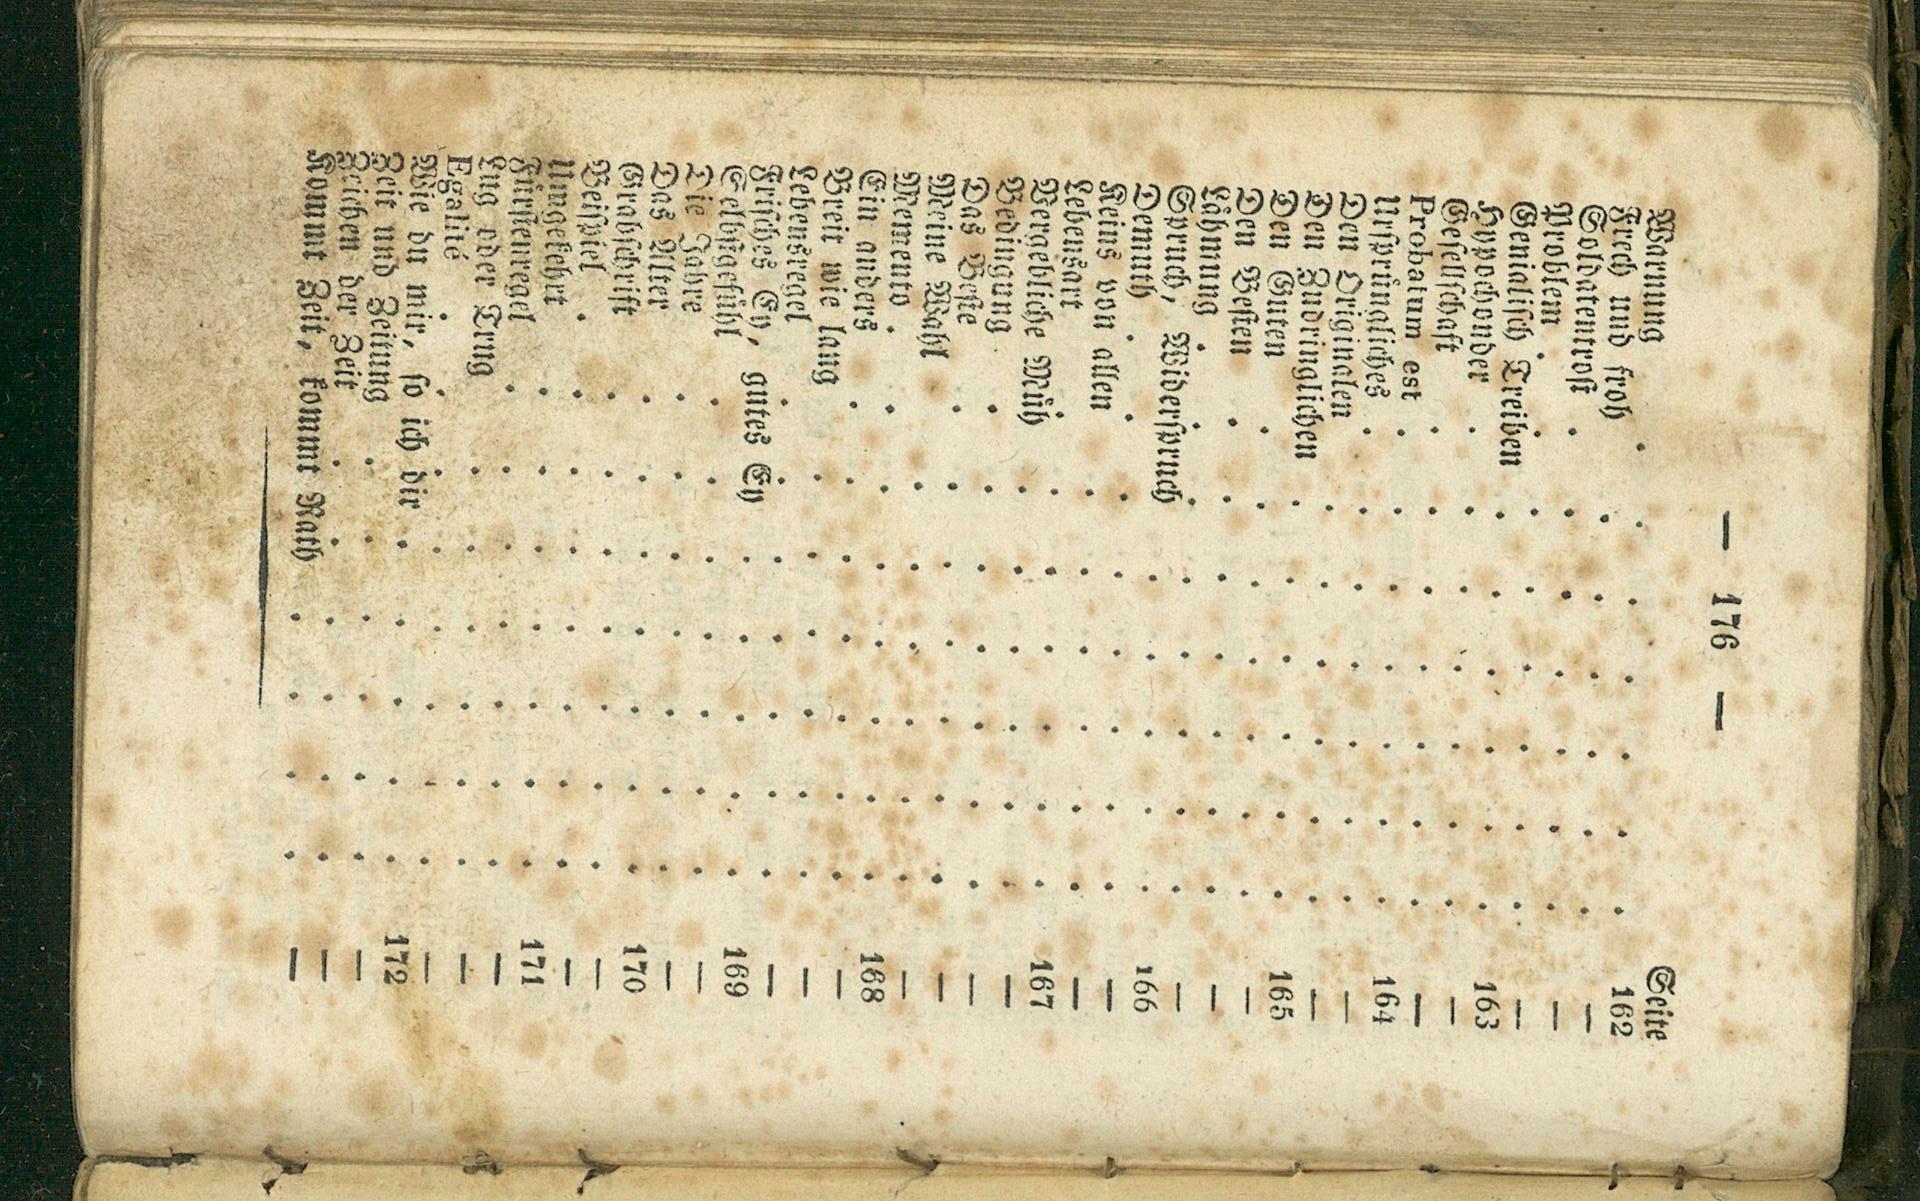 — 176 —
Seite
Warnung . . . . . . . 162
Frech und froh . . . . . . —
Soldatentrost . . . . . . —
Problem . . . . . . . —
Genialisch Treiben . . . . . . 163
Hypochonder . . . . . . —
Gesellschaft . . . . . . . —
Probatum est . . . . . . . 164
Ursprüngliches . . . . . . . —
Den Originalen . . . . . . —
Den Zudringlichen . . . . . . 165
Den Guten . . . . . . . —
Den Besten . . . . . . . —
Lähmung . . . . . . . —
Spruch, Widerspruch . . . . . 166
Demuth . . . . . . . —
Keins von allen . . . . . . —
Lebensart . . . . . . . 167
Vergebliche Müh . . . . . . —
Bedingung . . . . . . . —
Das Beste . . . . . . . —
Meine Wahl . . . . . . . —
Memento . . . . . . . 168
Ein anders . . . . . . . —
Breit wie lang . . . . . . —
Lebensregel . . . . . . . —
Frisches Ey, gutes Ey . . . . . 169
Selbstgefühl . . . . . . . —
Die Jahre . . . . . . . —
Das Alter . . . . . . . 170
Grabschrift . . . . . . . —
Beispiel . . . . . . . —
Umgekehrt . . . . . . . 171
Fürstenregel . . . . . . . —
Lug oder Trug . . . . . . —
Egalité . . . . . . . —
Wie du mir, so ich dir . . . . . 172
Zeit und Zeitung . . . . . . —
Zeichen der Zeit . . . . . . —
Kommt Zeit, kommt Rath . . . . —